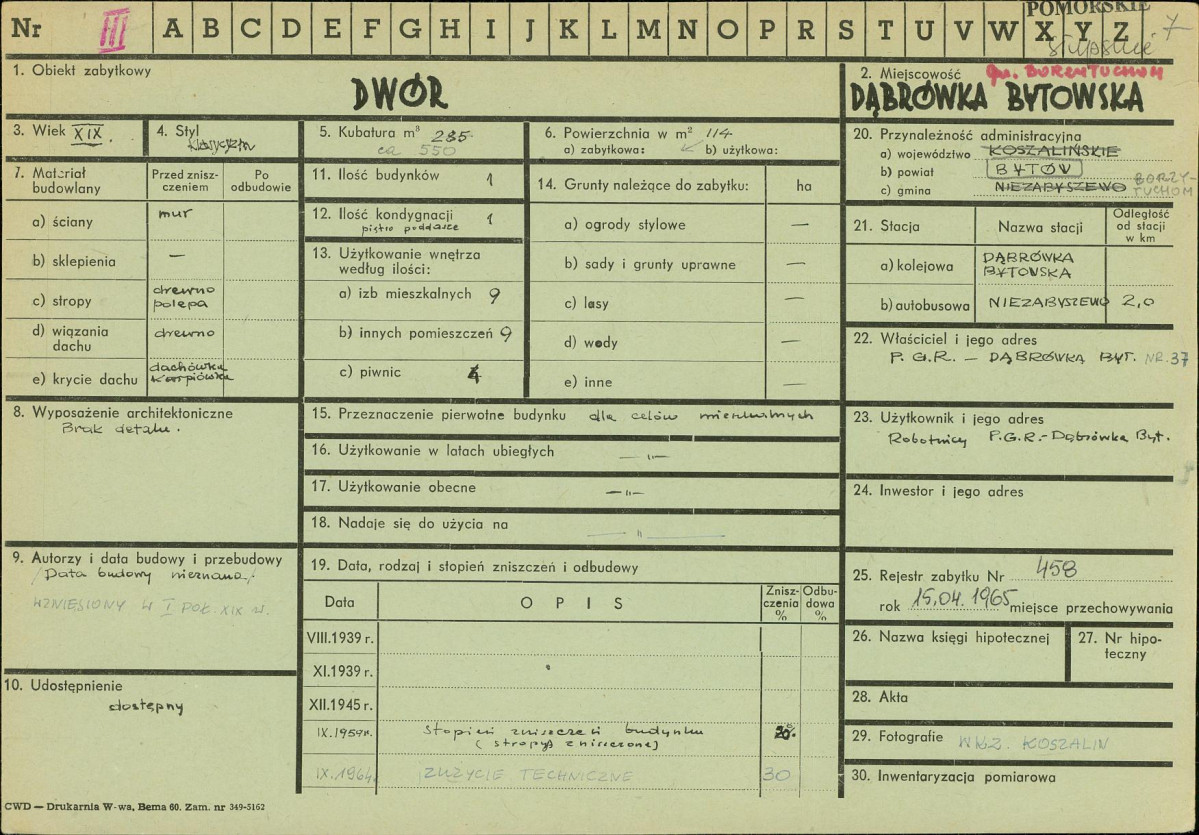 POMORSKIE
Nr III A B C D E F G H I J K L M N O P R S T U V W X Y Z 7
1. Obiekt zabytkowy
DWÓR
2. Miejscowość gm. BORZYTUCHOM
DĄBRÓWKA BYTOWSKA
3. Wiek XIX.
4. Styl klasycyzm
5. Kubatura m³ 285
ca 550
6. Powierzchnia w m² 114
a) zabytkowa: b) użytkowa:
7. Materiał budowlany
Przed zniszczeniem
Po odbudowie
a) ściany mur
b) sklepienia —
c) stropy drewno
polepa
d) wiązania dachu drewno
e) krycie dachu dachówka
karpiówka
8. Wyposażenie architektoniczne
Brak detalu.
9. Autorzy i data budowy i przebudowy
/Data budowy nieznana/
WZNIESIONY W I POŁ. XIX w.
10. Udostępnienie
dostępny
11. Ilość budynków 1
12. Ilość kondygnacji 1
piętro poddasze
13. Użytkowanie wnętrza
według ilości:
a) izb mieszkalnych 9
b) innych pomieszczeń 9
c) piwnic 4
14. Grunty należące do zabytku: ha
a) ogrody stylowe —
b) sady i grunty uprawne —
c) lasy —
d) wody —
e) inne —
15. Przeznaczenie pierwotne budynku dla celów mieszkalnych
16. Użytkowanie w latach ubiegłych —„—
17. Użytkowanie obecne —„—
18. Nadaje się do użycia na —„—
19. Data, rodzaj i stopień zniszczeń i odbudowy
Data OPIS Zniszczenia % Odbudowa %
VIII.1939 r.
XI.1939 r.
XII.1945 r.
IX.1959r. Stopień zniszczeń budynku 20%
(stropy zniszczone)
IX.1964r. ZUŻYCIE TECHNICZNE 30
20. Przynależność administracyjna
a) województwo KOSZALIŃSKIE
b) powiat BYTÓW
c) gmina NIEZABYSZEWO BORZY-
TUCHOM
21. Stacja Nazwa stacji Odległość od stacji w km
a) kolejowa DĄBRÓWKA
BYTOWSKA
b) autobusowa NIEZABYSZEWO 2,0
22. Właściciel i jego adres
P.G.R. — DĄBRÓWKA BYT. NR. 37
23. Użytkownik i jego adres
Robotnicy P.G.R.- Dąbrówka Byt.
24. Inwestor i jego adres
25. Rejestr zabytku Nr 458
rok 15.04.1965 miejsce przechowywania
26. Nazwa księgi hipotecznej
27. Nr hipoteczny
28. Akta
29. Fotografie WKZ. KOSZALIN
30. Inwentaryzacja pomiarowa
CWD — Drukarnia W-wa, Bema 60. Zam. nr 349-5162